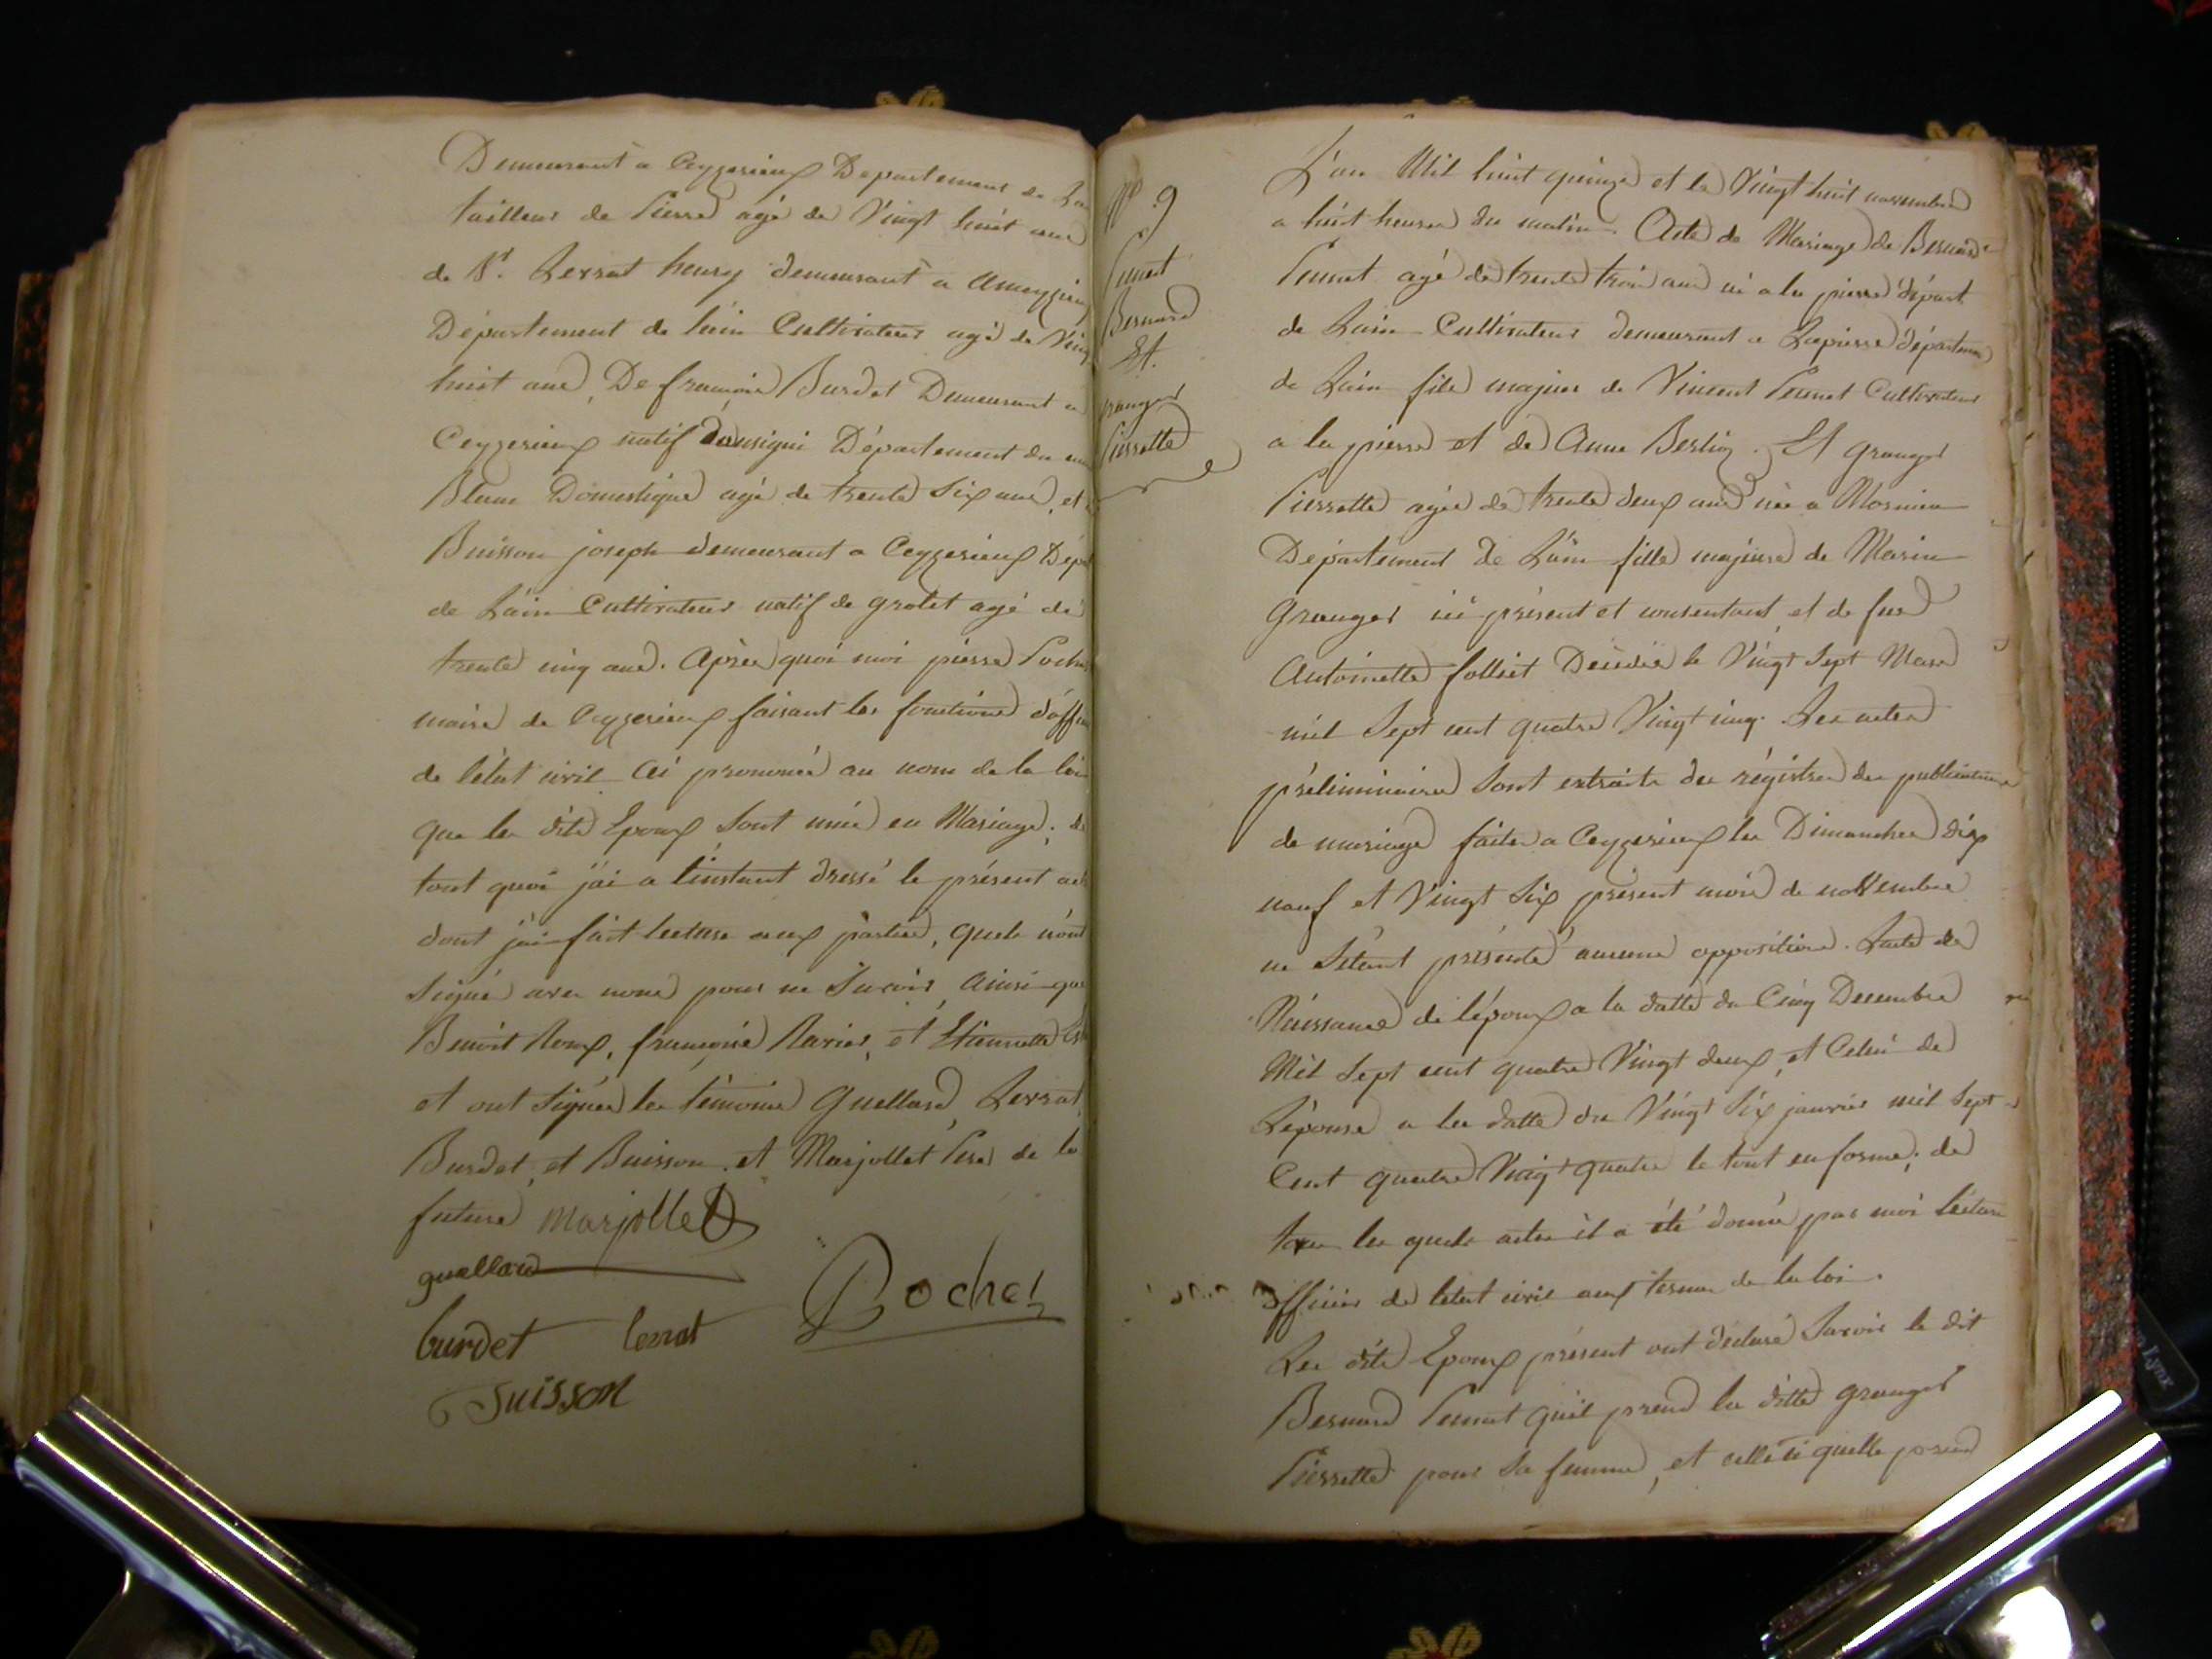 Demeurant a Ceyzerieux Departement de
tailleur de Pierre agé de Vingt huit ans
de Sr. Lerrat henry demeurant a Ameyzieux
Département de lain Cultivateur agé de Vingt
huit ans, De françois Burdet Demeurant a
Ceyzerieux natif Département du
Blanc Domestique agé de trente Six ans, et
Buisson joseph demeurant a Ceyzerieux Dép
de Lain Cultivateur natif de grolet agé de
trente cinq ans. Après quoi moi pierre Poche
maire de Ceyzerieux faisant les fonctions d'off
de l'état civil ai prononcé au nom de la loi
que les dits Epoux Sont unis en Mariage; de
tout quoi j'ai a linstant dressé le présent acte
dont j'ai fait lecture aux parties, quels n'ont
Signé avec nous pour ne Savoir, ainsi que
Benoit Roux, françoise Ravier, et Etiennette
et ont Signés les témoins Guellard, Lerrat,
Burdet, et Buisson, et Marjollet Pere de la
future Marjollet
guellard
Pochet
burdet lerrat
Buisson
N° 9
Pernet
Bernard
Et.
granger
Pierrette
L'an Mil huit quinze et le Vingt huit novembre
a huit heures du matin. Acte de Mariage de Bernard
Pernet agé de trente trois ans né a la pierre départ
de Lain Cultivateur demeurant a Lapierre départem
de Lain fils majeur de Vincent Pernet Cultivateur
a la pierre et de Anne Berlioz. Et granger
Pierrette agée de trente deux ans née a
Département de Lain fille majeure de Marin
Granger ici présent et consentant, et de fue
Antoinette folliet Décédée le Vingt Sept Mars
mil Sept cent quatre Vingt cinq. Les actes
préliminaires Sont extraits du régistre des publications
de mariage faites a Ceyzerieux les Dimanches dix
neuf et Vingt Six présent mois de novembre
ne S'étant présenté aucune opposition. Lacte de
Naissance de l'époux a la datte du Cinq Decembre
Mil Sept cent quatre Vingt deux, et Celui de
Lépouse a la datte du Vingt Six janvier mil Sept
Cent quatre Vingt quatre le tout en forme; de
tous les quels actes il a été donné par moi lecture
officier de letat civil aux termes de la loi.
Les dits Epoux présent ont déclaré Savoir le dit
Bernard Pernet quil prend la ditte granger
Pierrette pour Sa femme, et celle ci quelle prend